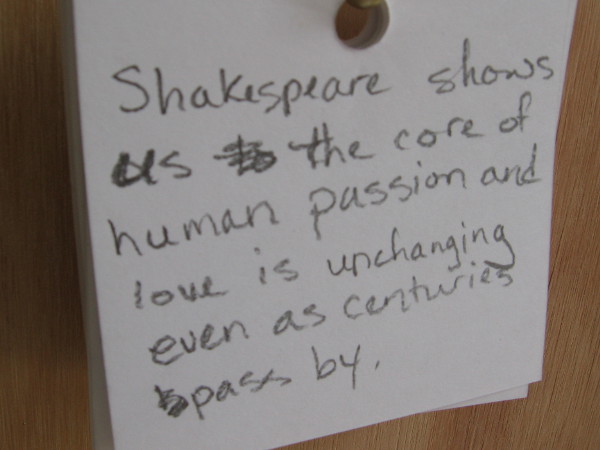 Shakespeare shows
us the core of
human passion and
love is unchanging
even as centuries
pass by.